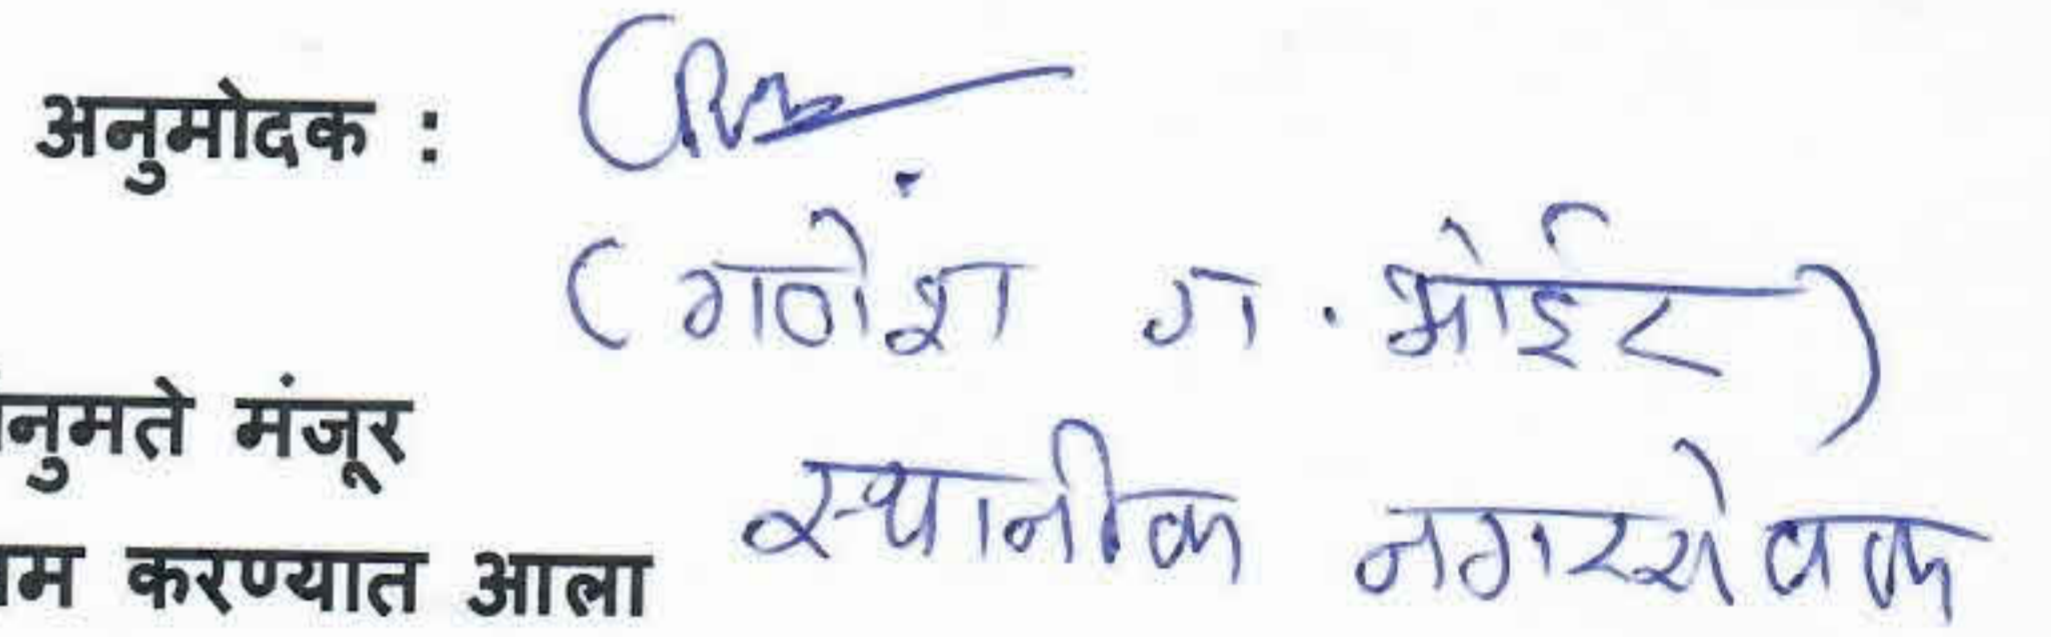 अनुमोदक :
(गणेश ग. भोईर)
नुमते मंजूर
स्थानीक नगरसेवक
करण्यात आला